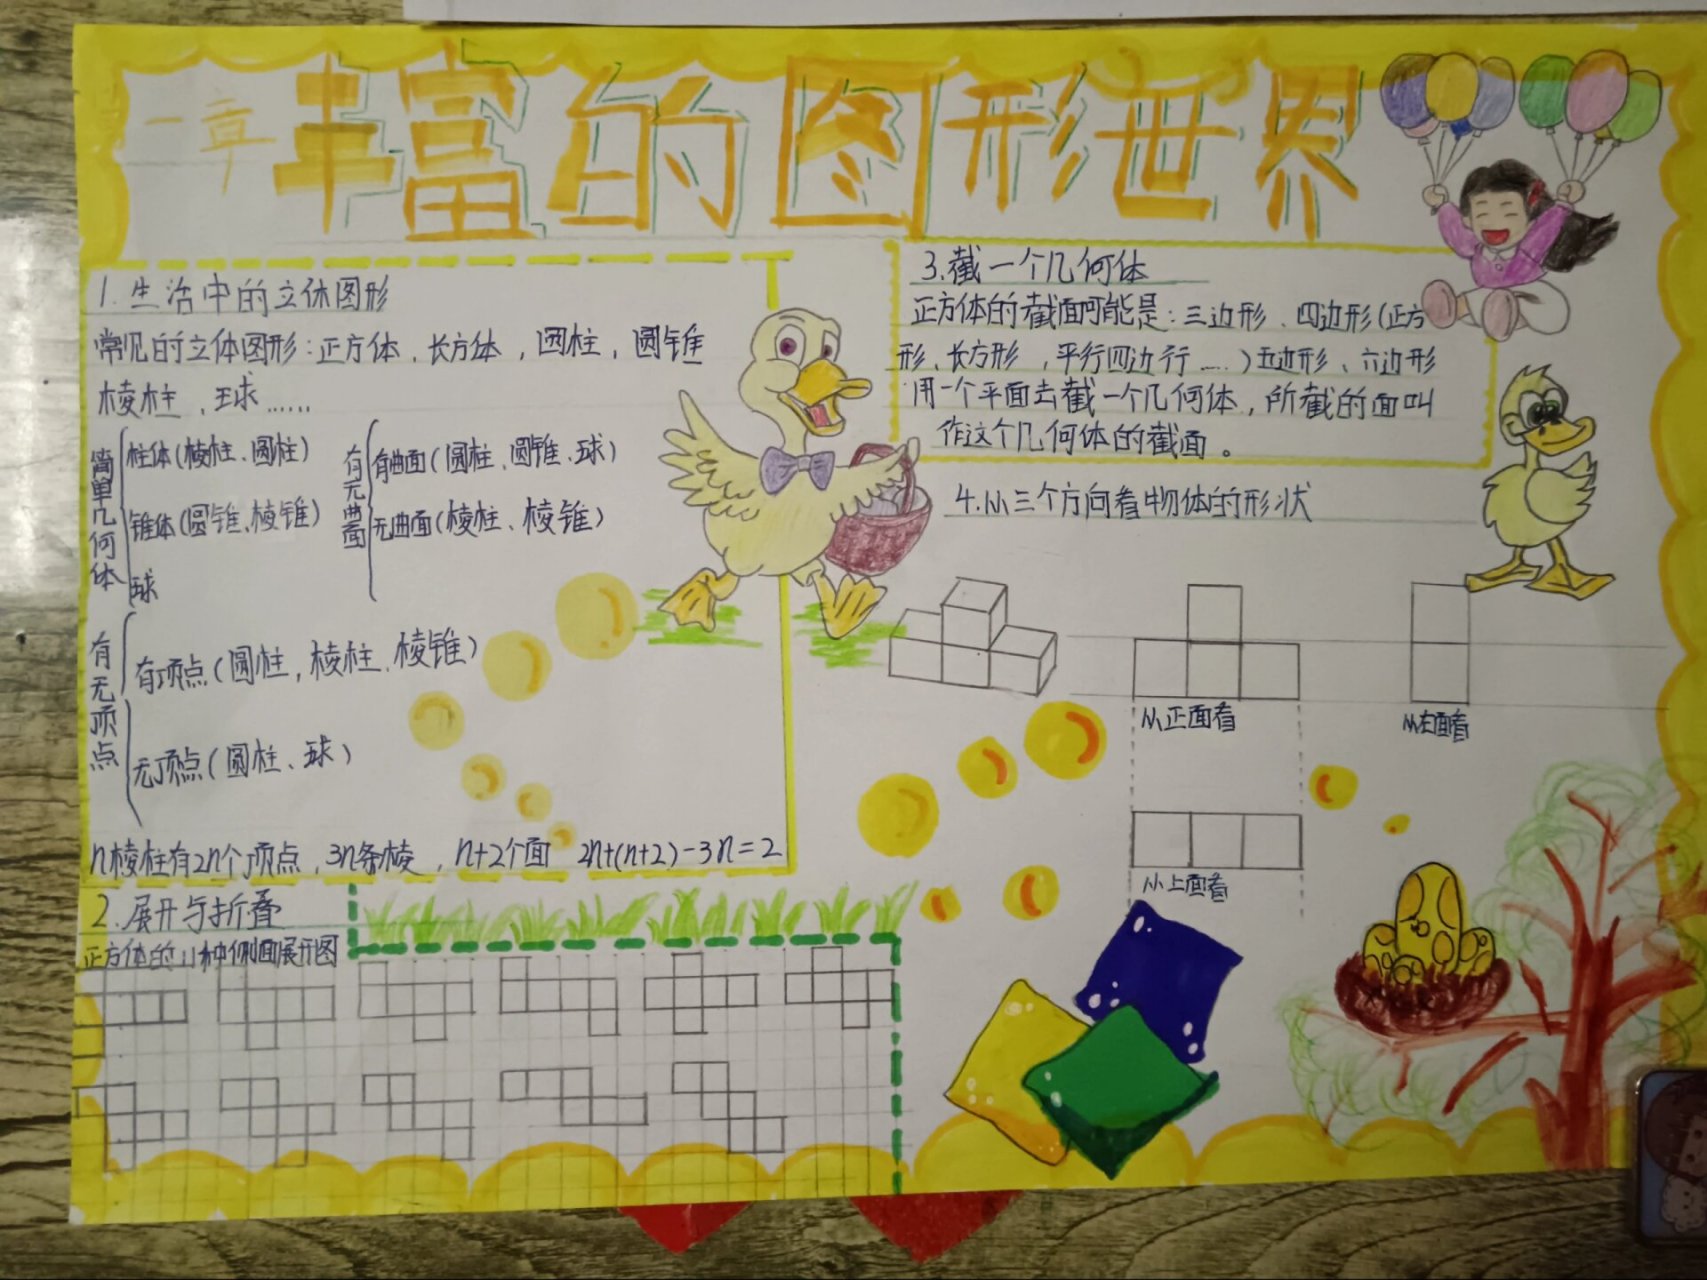 一章 丰富的图形世界
1.生活中的立体图形
常见的立体图形:正方体,长方体,圆柱,圆锥
棱柱,球……
简单几何体
柱体(棱柱、圆柱)
锥体(圆锥、棱锥)
球
有无曲面
有曲面(圆柱、圆锥、球)
无曲面(棱柱、棱锥)
有无顶点
有顶点(圆柱,棱柱、棱锥)
无顶点(圆柱、球)
n棱柱有2n个顶点,3n条棱,n+2个面 2n+(n+2)-3n=2
2.展开与折叠
正方体的11种侧面展开图
3.截一个几何体
正方体的截面可能是:三边形、四边形(正方
形、长方形,平行四边行……)五边形、六边形
用一个平面去截一个几何体,所截的面叫
作这个几何体的截面。
4.从三个方向看物体的形状
从正面看
从左面看
从上面看